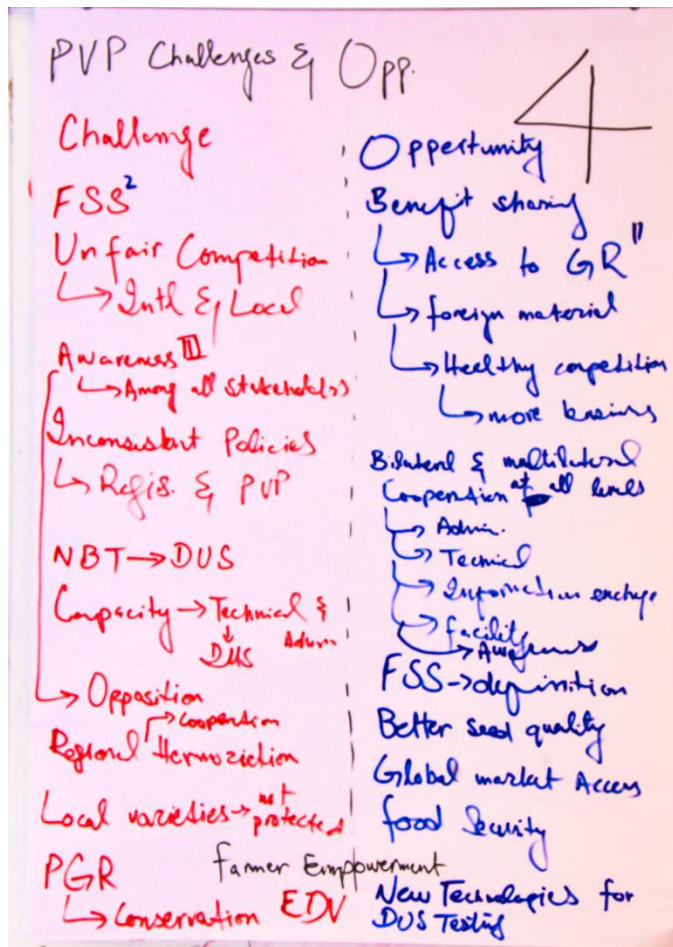 PVP Challenges & Opp.
4
Challenge
FSS²
Unfair Competition
↳ Intl & Local
Awareness III
↳ Among all stakehol(s)
Inconsistant Policies
↳ Regis. & PVP
NBT → DUS
Capacity → Technical & Admn
↓
DUS
↳ Opposition
Regional Hermoziction
↱ cooperation
Local varieties → not protected
PGR
↳ Conservation
EDV
Farmer Emppowerment
Oppertunity
Benefit sharing
↳ Access to GR"
↳ foreign material
↳ Healthy copetition
↳ more
Bilateral & multilateral
Cooperation at all levels
↳ Admin.
↳ Technical
↳ Information
↳ facility
↳ Awareness
FSS → definition
Better seed quality
Global market Access
food Security
New Technologies for
DUS Testing